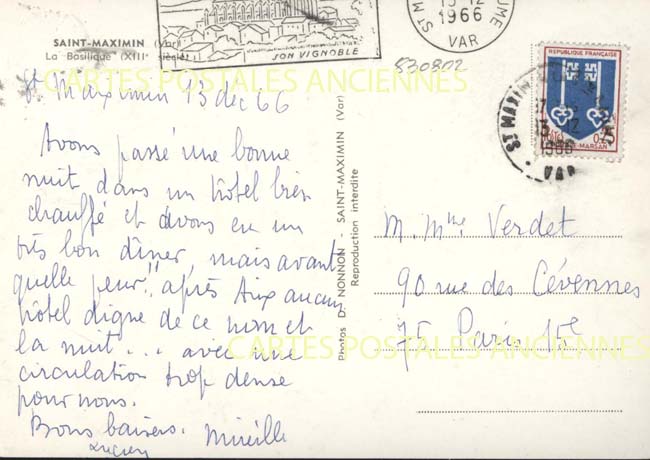 SAINT-MAXIMIN (Var)
La Basilique (XIIIe siècle)
SON VIGNOBLE
13-12
1966
VAR
530802
REPUBLIQUE FRANÇAISE
ST MAXIMIN
13-12
1966
VAR
CARTES POSTALES ANCIENNES
St Maximin 13 dec 66
Avons passé une bonne
nuit dans un hôtel bien
chauffé et avons eu un
très bon dîner, mais avant
quelle peur!! après Aix aucun
hôtel digne de ce nom et
la nuit... avec une
circulation trop dense
pour nous.
Bons baisers. Mireille
Lucien
Photos D. NONNON - SAINT-MAXIMIN (Var)
Reproduction interdite
M. Mme Verdet
90 rue des Cévennes
75 Paris 15e
CARTES POSTALES ANCIENNES